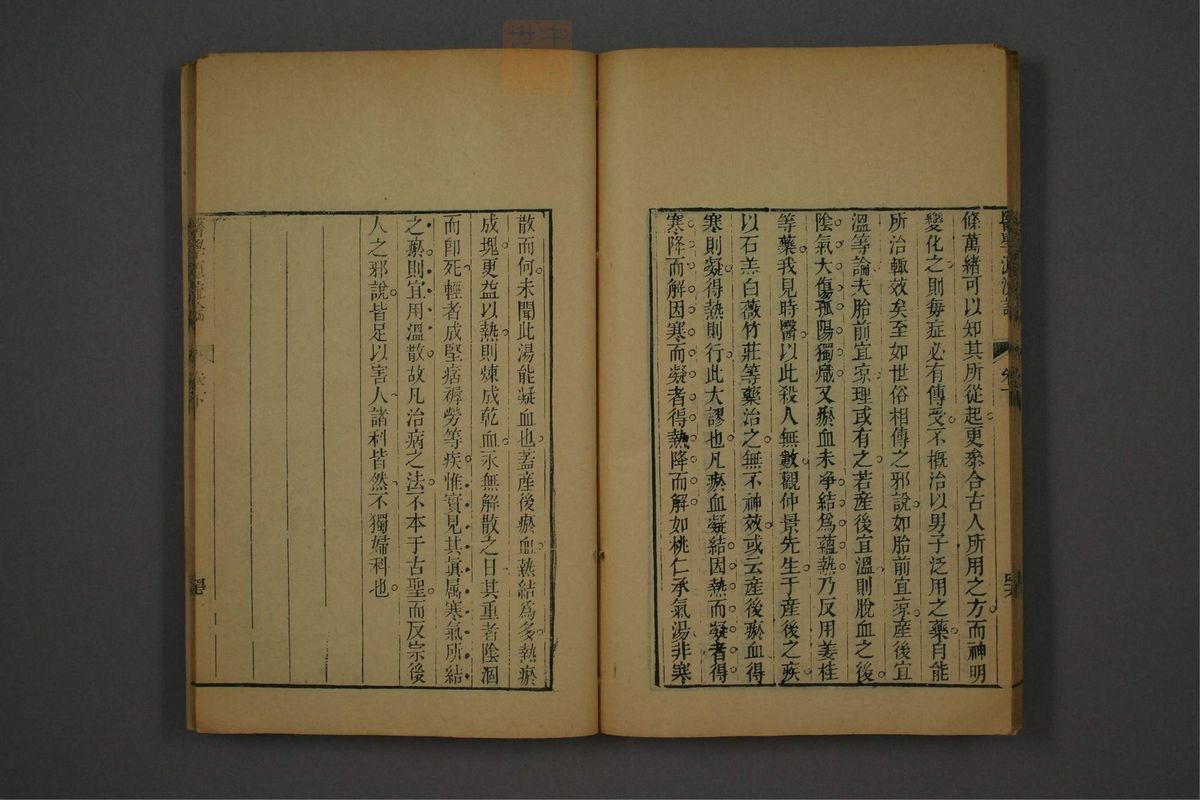 條萬緒可以知其所從起更叅合古人所用之方而神明
變化之則每症必有傳受不概治以男子泛用之藥自能
所治輙效矣至如世俗相傳之邪說如胎前宜凉產後宜
溫等論夫胎前宜凉理或有之若產後宜溫則脫血之後
陰氣大傷孤陽獨熾又瘀血未净結爲蘊熱乃反用姜桂
等藥我見時醫以此殺人無數觀仲景先生于產後之疾
以石羔白薇竹茹等藥治之無不神效或云產後瘀血得
寒則凝得熱則行此大謬也凡瘀血凝結因熱而凝者得
寒降而解因寒而凝者得熱降而解如桃仁承氣湯非寒
散而何未聞此湯能凝血也葢產後瘀血熱結爲多熱瘀
成塊更益以熱則煉成乾血永無解散之日其重者陰涸
而即死輕者成堅痞褥勞等疾惟實見其眞属寒氣所結
之瘀則宜用溫散故凡治病之法不本于古聖而反宗後
人之邪說皆足以害人諸科皆然不獨婦科也
醫學源流論